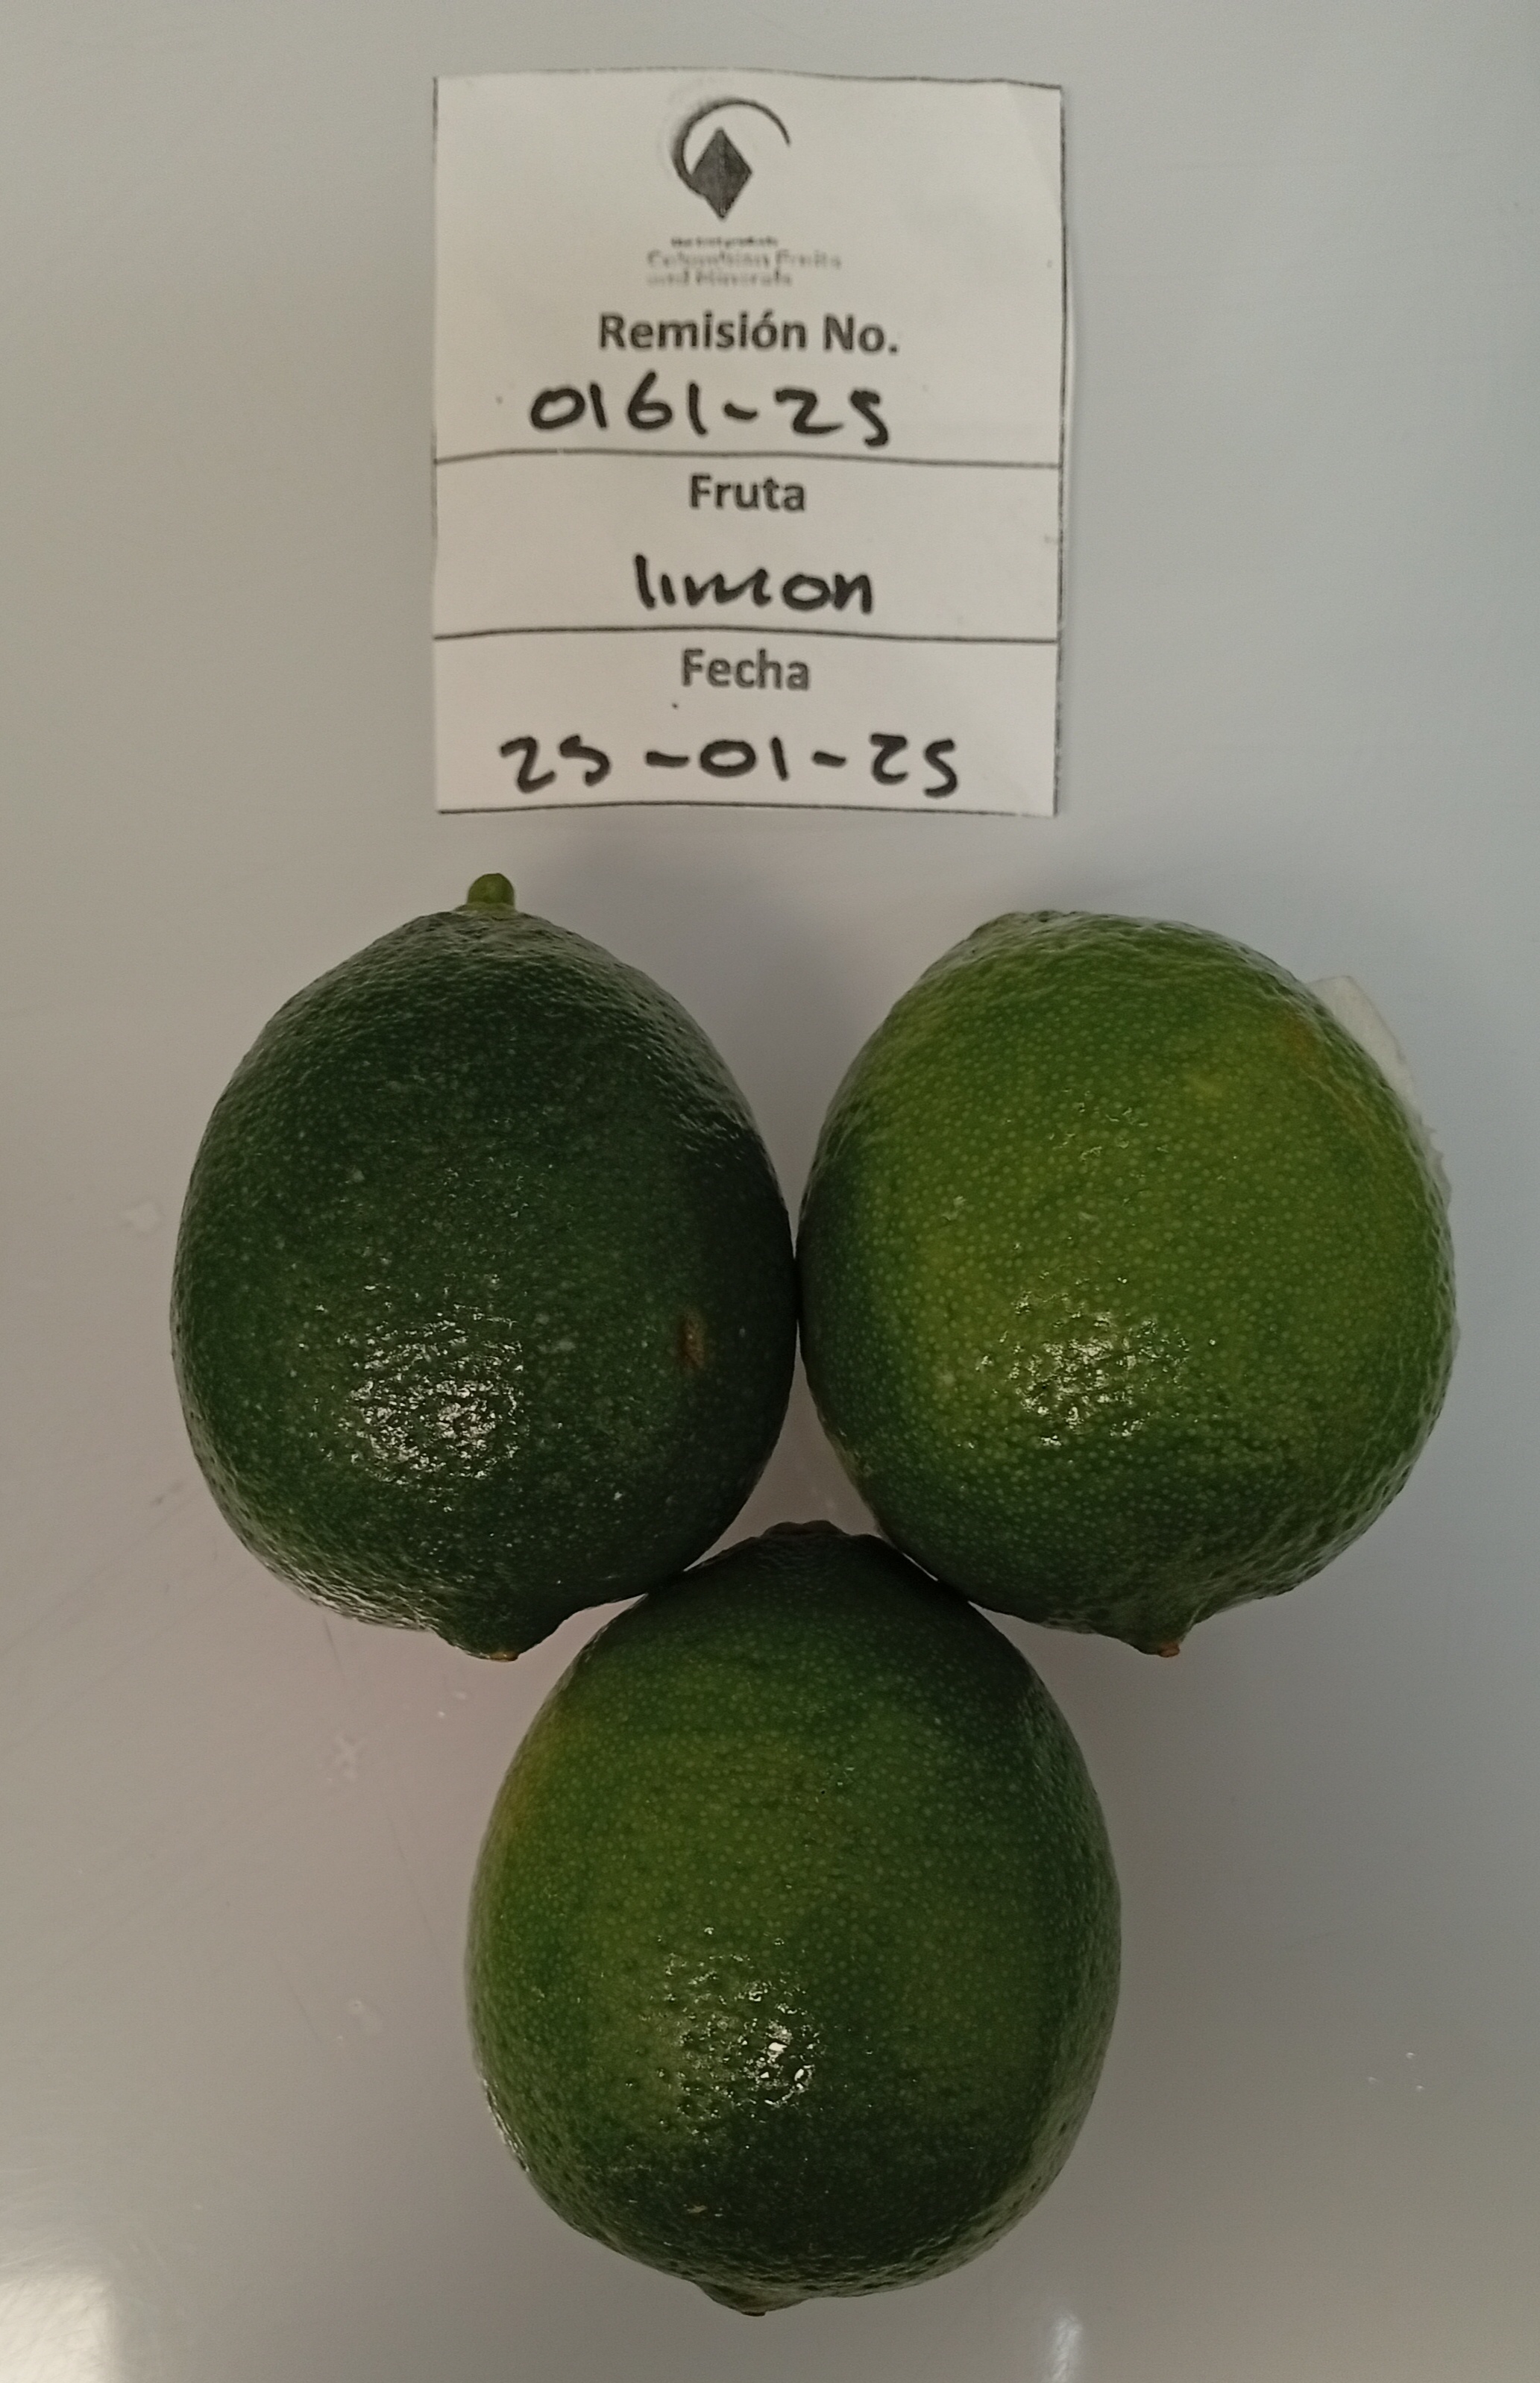 Colombian Fruits
and Minerals
Remisión No.
0161-25
Fruta
limon
Fecha
25-01-25